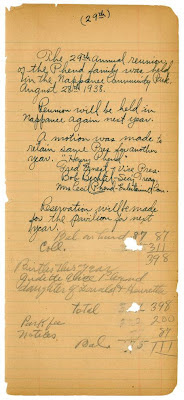 (29th)
The 29th Annual reunion
of the Phend family was held
in the Nappanee Community Park
August 28th 1938.
Reunion will be held in
Nappanee again next year.
A motion was made to
retain same Pres for another
year. "Henry Phend"
Fred Ernest - Vice Pres
Becknel - Sec-Treas
Mrs Cecil Phend - Entertain. Com.
Reservation will be made
for the pavilion for next
year.
Bal. on hand 87 87
Coll. 311
398
Births this year
Phend
daughter of &
total 398
Park fee 200
Notices 87
Bal. 111